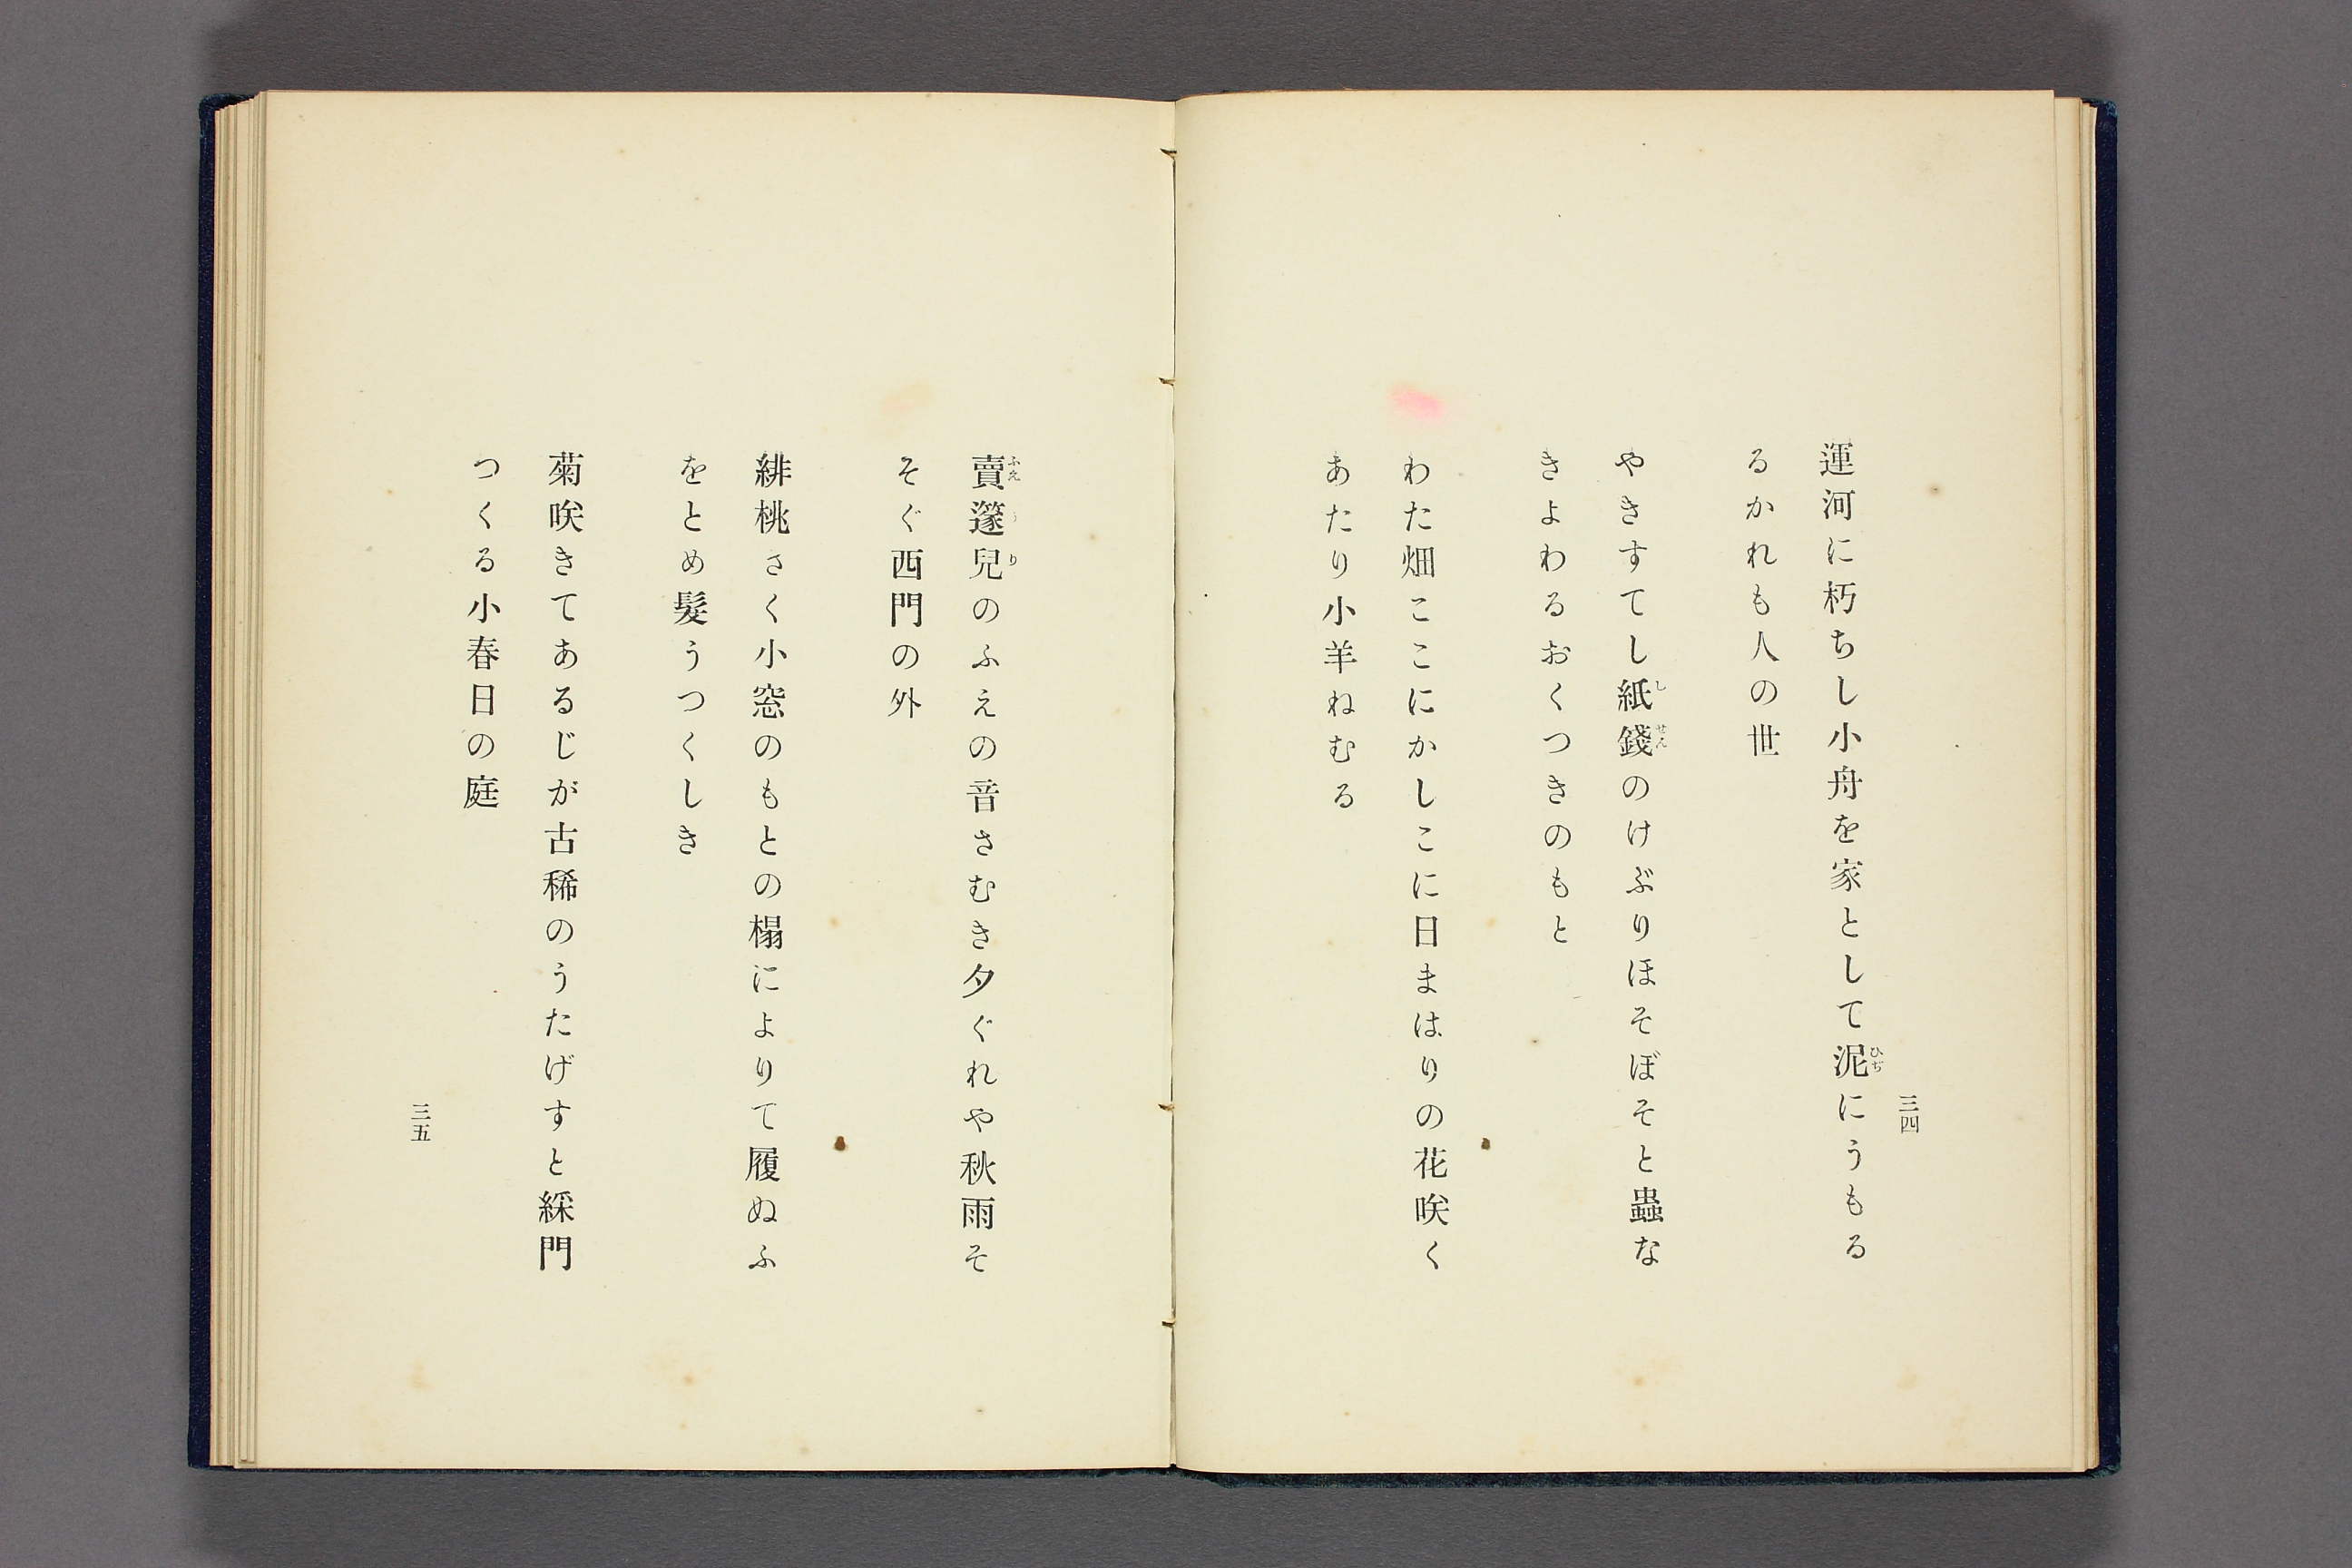 三四
運河に朽ちし小舟を家として泥にうもる
るかれも人の世
やきすてし紙錢のけぶりほそぼそと蟲な
きよわるおくつきのもと
わた畑ここにかしこに日まはりの花咲く
あたり小羊ねむる
賣篴兒のふえの音さむき夕ぐれや秋雨そ
そぐ西門の外
緋桃さく小窓のもとの榻によりて履ぬふ
をとめ髮うつくしき
菊咲きてあるじが古稀のうたげすと綵門
つくる小春日の庭
三五